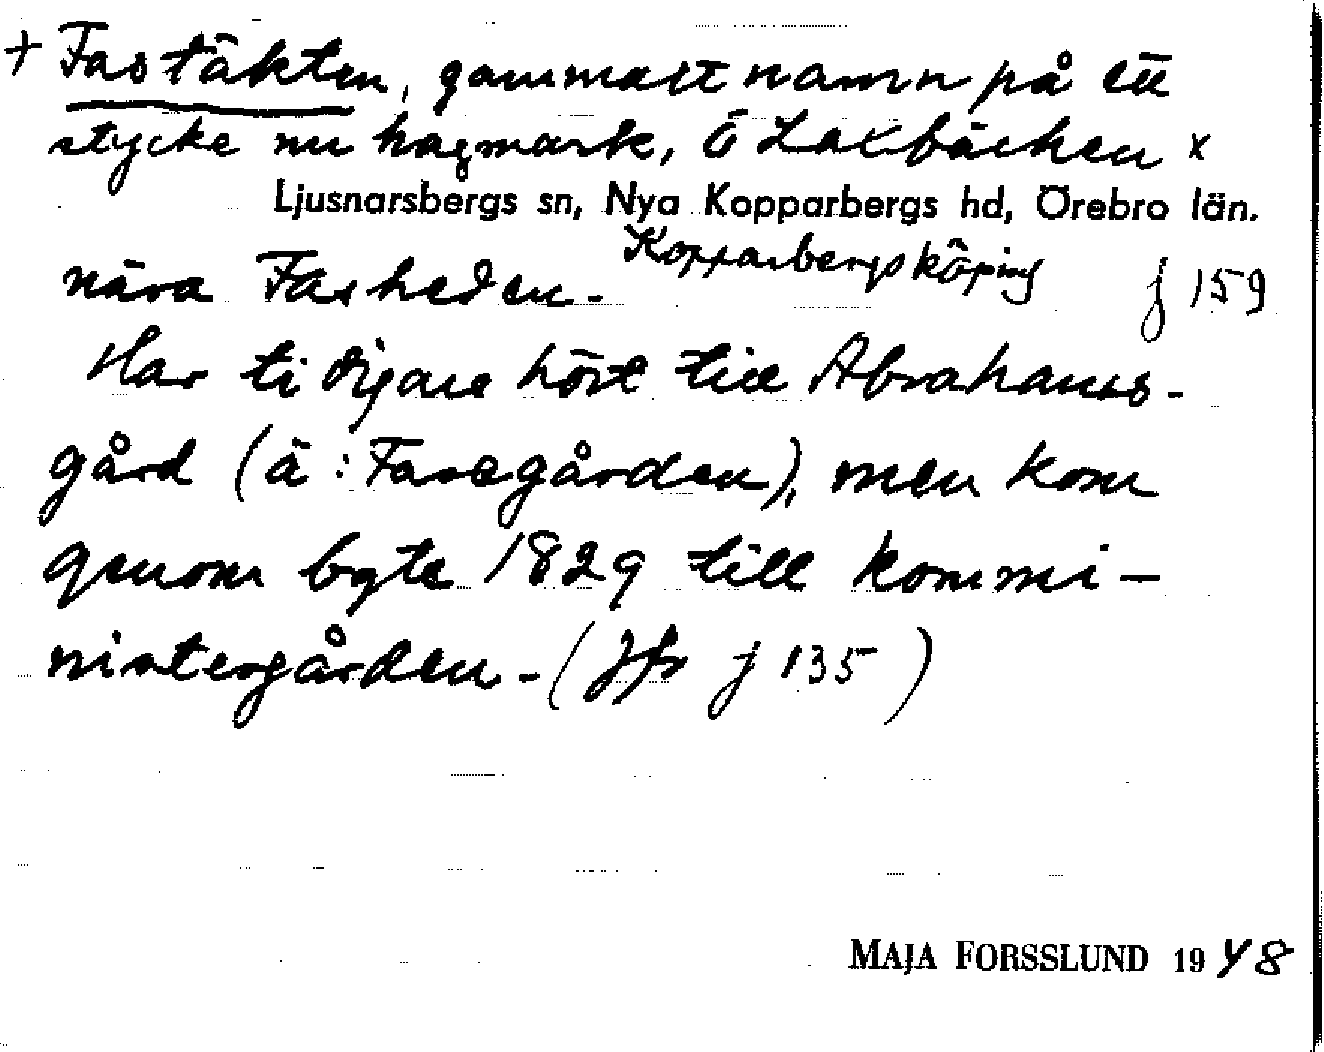 + Fastäkten, gammalt namn på ett
stycke nu hagmark, Ö Laxbäcken x
Ljusnarsbergs sn, Nya Kopparbergs hd, Örebro län.
Kopparbergs köping
nära Fasheden. j 159
Har tidigare hört till Abrahams-
gård (ä: Fasegården), men kom
genom byte 1829 till kommi-
nistergården. (Jfr j 135)
MAJA FORSSLUND 1948